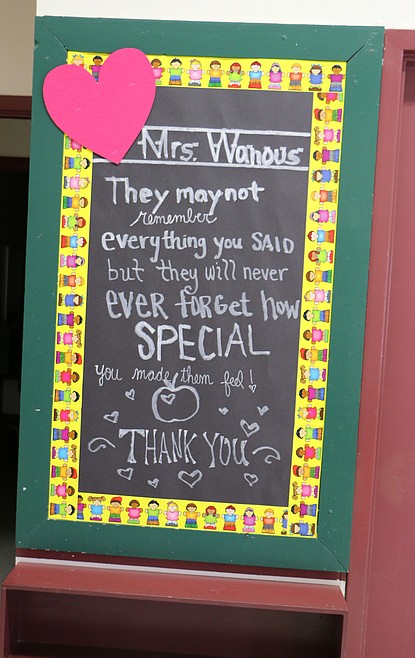 Mrs. Wanous
They may not
remember
everything you SAID
but they will never
EVER FORGET how
SPECIAL
you made them feel!
THANK YOU